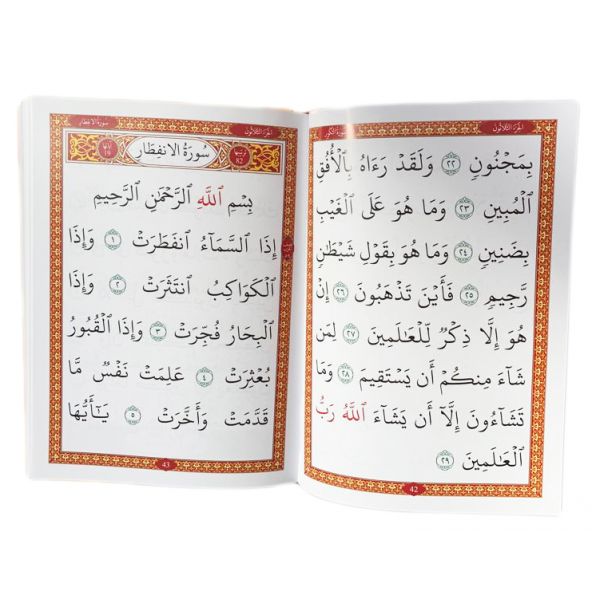 الجزء الثلاثون
سورة التكوير
بِمَجۡنُونٖ ٢٢ وَلَقَدۡ رَءَاهُ بِٱلۡأُفُقِ
ٱلۡمُبِينِ ٢٣ وَمَا هُوَ عَلَى ٱلۡغَيۡبِ
بِضَنِينٖ ٢٤ وَمَا هُوَ بِقَوۡلِ شَيۡطَٰنٖ
رَّجِيمٖ ٢٥ فَأَيۡنَ تَذۡهَبُونَ ٢٦ إِنۡ
هُوَ إِلَّا ذِكۡرٞ لِّلۡعَٰلَمِينَ ٢٧ لِمَن
شَآءَ مِنكُمۡ أَن يَسۡتَقِيمَ ٢٨ وَمَا
تَشَآءُونَ إِلَّآ أَن يَشَآءَ ٱللَّهُ رَبُّ
ٱلۡعَٰلَمِينَ ٢٩
42
الجزء الثلاثون
سورة الانفطار
سُورَةُ الانفِطَار
بِسۡمِ ٱللَّهِ ٱلرَّحۡمَٰنِ ٱلرَّحِيمِ
إِذَا ٱلسَّمَآءُ ٱنفَطَرَتۡ ١ وَإِذَا
ٱلۡكَوَاكِبُ ٱنتَثَرَتۡ ٢ وَإِذَا
ٱلۡبِحَارُ فُجِّرَتۡ ٣ وَإِذَا ٱلۡقُبُورُ
بُعۡثِرَتۡ ٤ عَلِمَتۡ نَفۡسٞ مَّا
قَدَّمَتۡ وَأَخَّرَتۡ ٥ يَٰٓأَيُّهَا
43